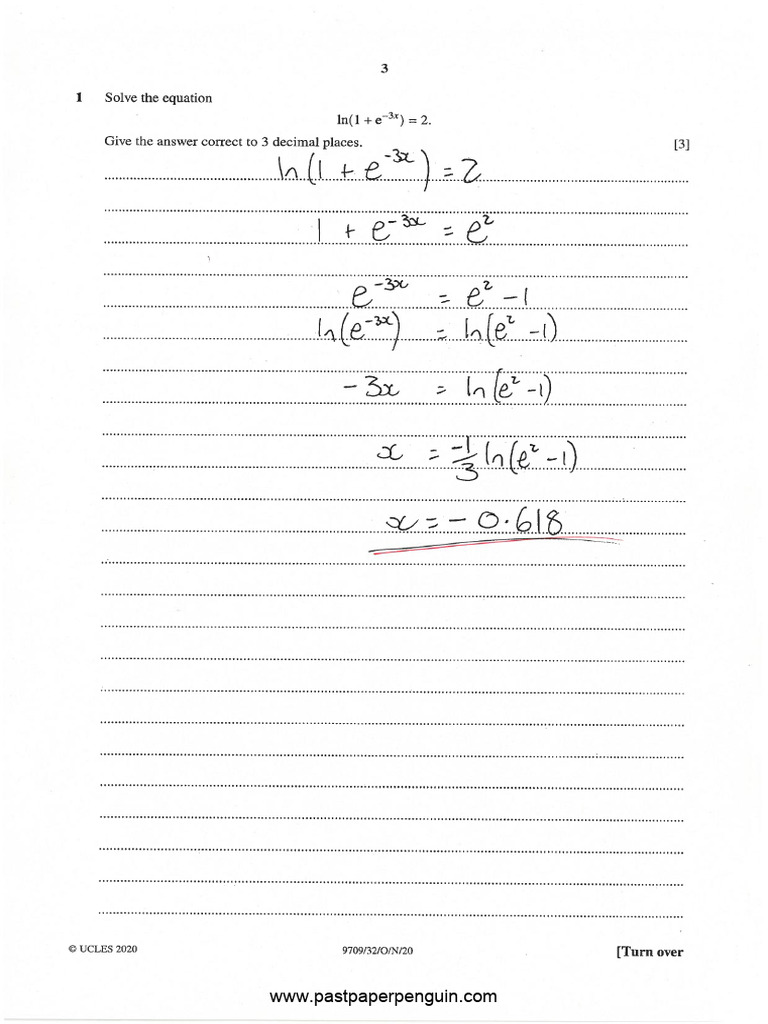 3
1 Solve the equation
ln(1 + e⁻³ˣ) = 2.
Give the answer correct to 3 decimal places. [3]
ln(1 + e⁻³ˣ) = 2
1 + e⁻³ˣ = e²
e⁻³ˣ = e² − 1
ln(e⁻³ˣ) = ln(e² − 1)
−3x = ln(e² − 1)
x = −1/3 ln(e² − 1)
x = − 0.618
© UCLES 2020 9709/32/O/N/20 [Turn over
www.pastpaperpenguin.com